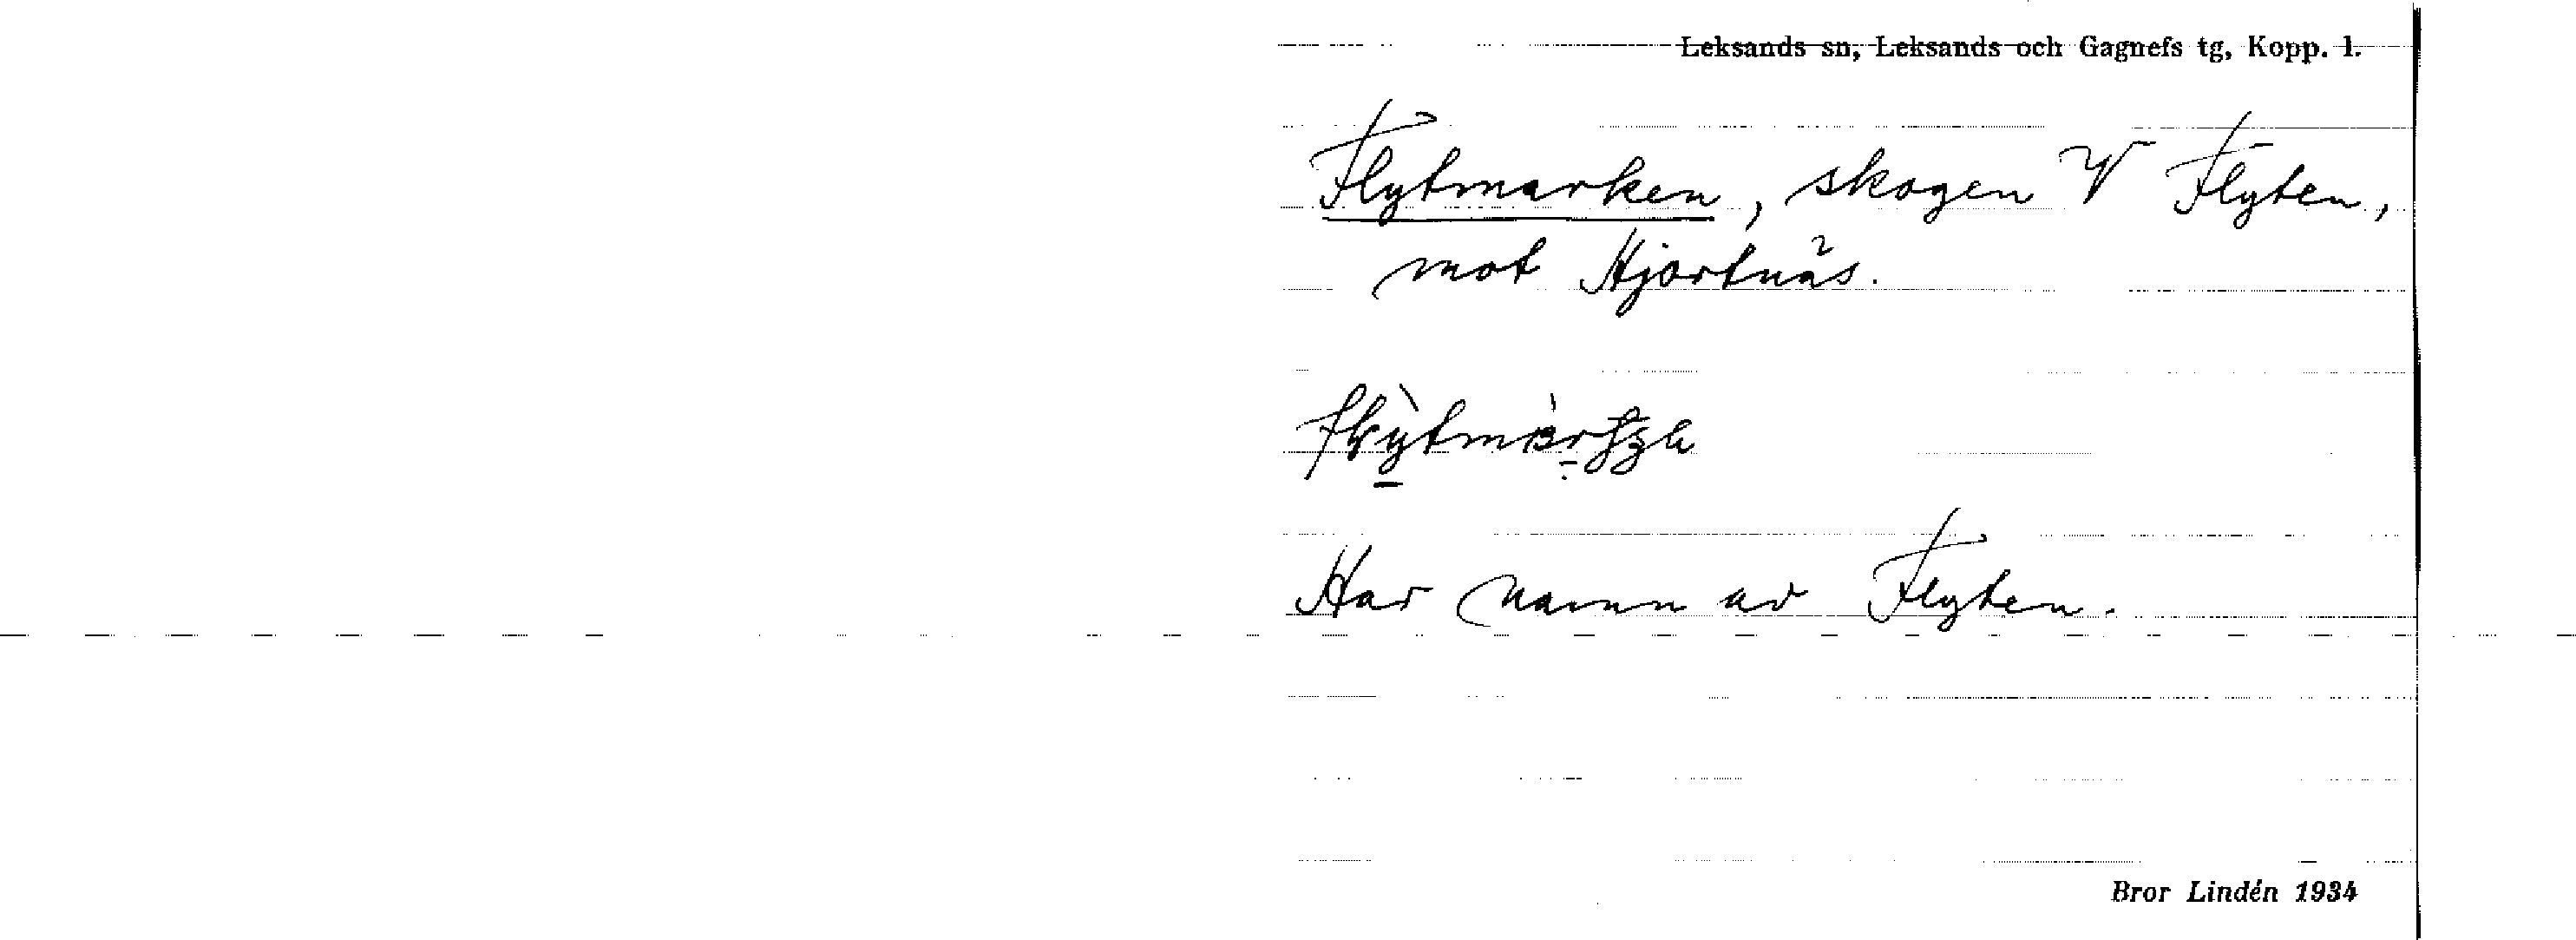 Leksands sn, Leksands och Gagnefs tg, Kopp. l.
Flytmarken, skogen V Flyten,
mot Hjortnäs.
Har namn av Flyten.
Bror Lindén 1934